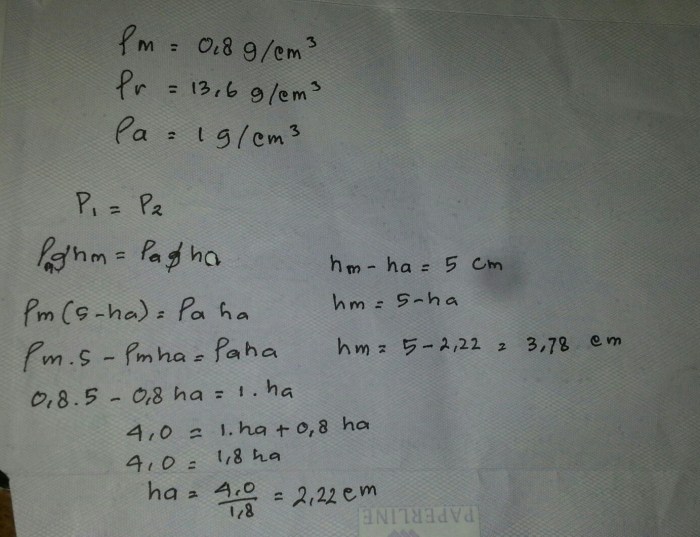 ρm = 0,8 g/cm³
ρr = 13,6 g/cm³
ρa = 1 g/cm³
P₁ = P₂
ρm g hm = ρa g ha
ρm (5-ha) = ρa ha
ρm.5 - ρm ha = ρa ha
0,8.5 - 0,8 ha = 1. ha
4,0 = 1.ha + 0,8 ha
4,0 = 1,8 ha
ha = 4,0/1,8 = 2,22 cm
hm - ha = 5 cm
hm = 5-ha
hm = 5-2,22 = 3,78 cm
PAPERLINE